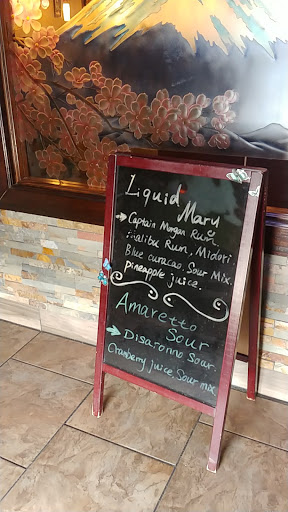 Liquid
Mary
Captain Morgan Rum,
Malibu Rum, Midori
Blue curacao. Sour Mix.
pineapple juice.
Amaretto
Sour
Disaronno Sour.
Cranberry juice. Sour mix